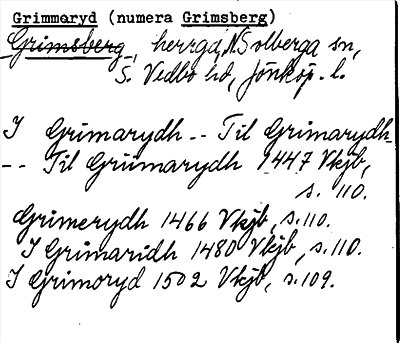 Grimmaryd (numera Grimsberg)
Grimsberg, herrgd, N. Solberga sn,
S. Vedbo hd, Jönköp. l.
I Grimarydh -- Til Grimarydh-
-- Til Griimarydh 1447 Vkjb,
s. 110.
Grimerydh 1466 Vkjb, s. 110.
I Grimaridh 1480 Vkjb, s. 110.
I Grimoryd 1502 Vkjb, s. 109.